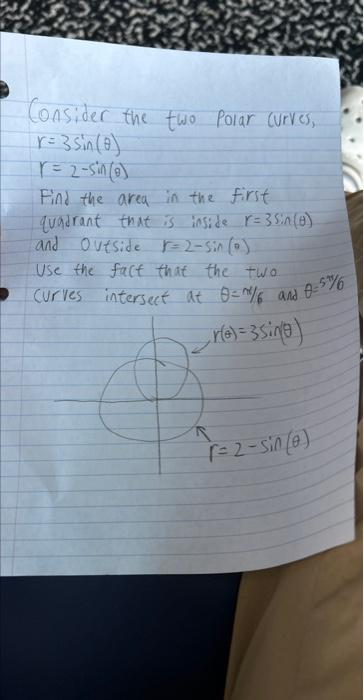 Consider the two Polar curves,
r=3sin(θ)
r=2-sin(θ)
Find the area in the first
quadrant that is inside r=3sin(θ)
and Outside r=2-sin(θ)
Use the fact that the two
curves intersect at θ=π/6 and θ=5π/6
r(θ)=3sin(θ)
r=2-sin(θ)